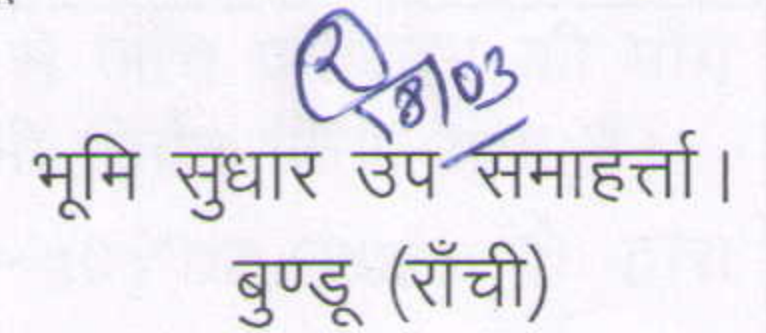 8/03
भूमि सुधार उप समाहर्त्ता।
बुण्डू (राँची)